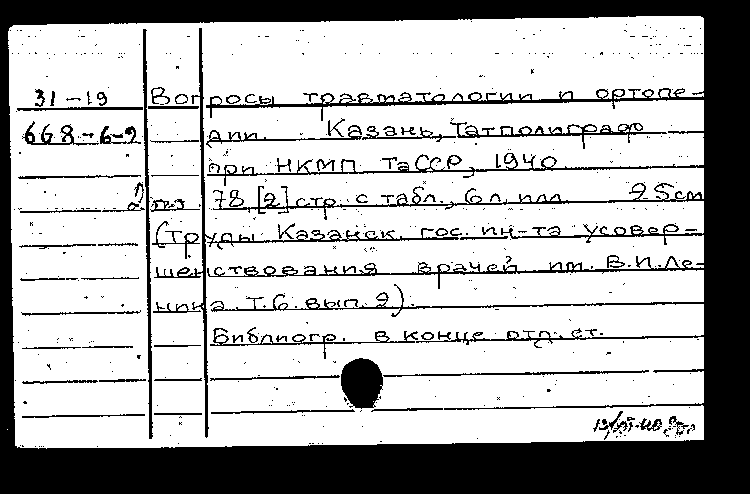 31-19 Вопросы травматологии и ортопе-
668-6-2 дии. Казань, Татполиграф
при НКМП ТаССР, 1940
78, [2] стр. с табл., 6 л. илл. 25см
(Труды Казанск. гос. ин-та усовер-
шенствования врачей им. В.И.Ле-
нина. Т.6. вып. 2).
Библиогр. в конце отд. ст.